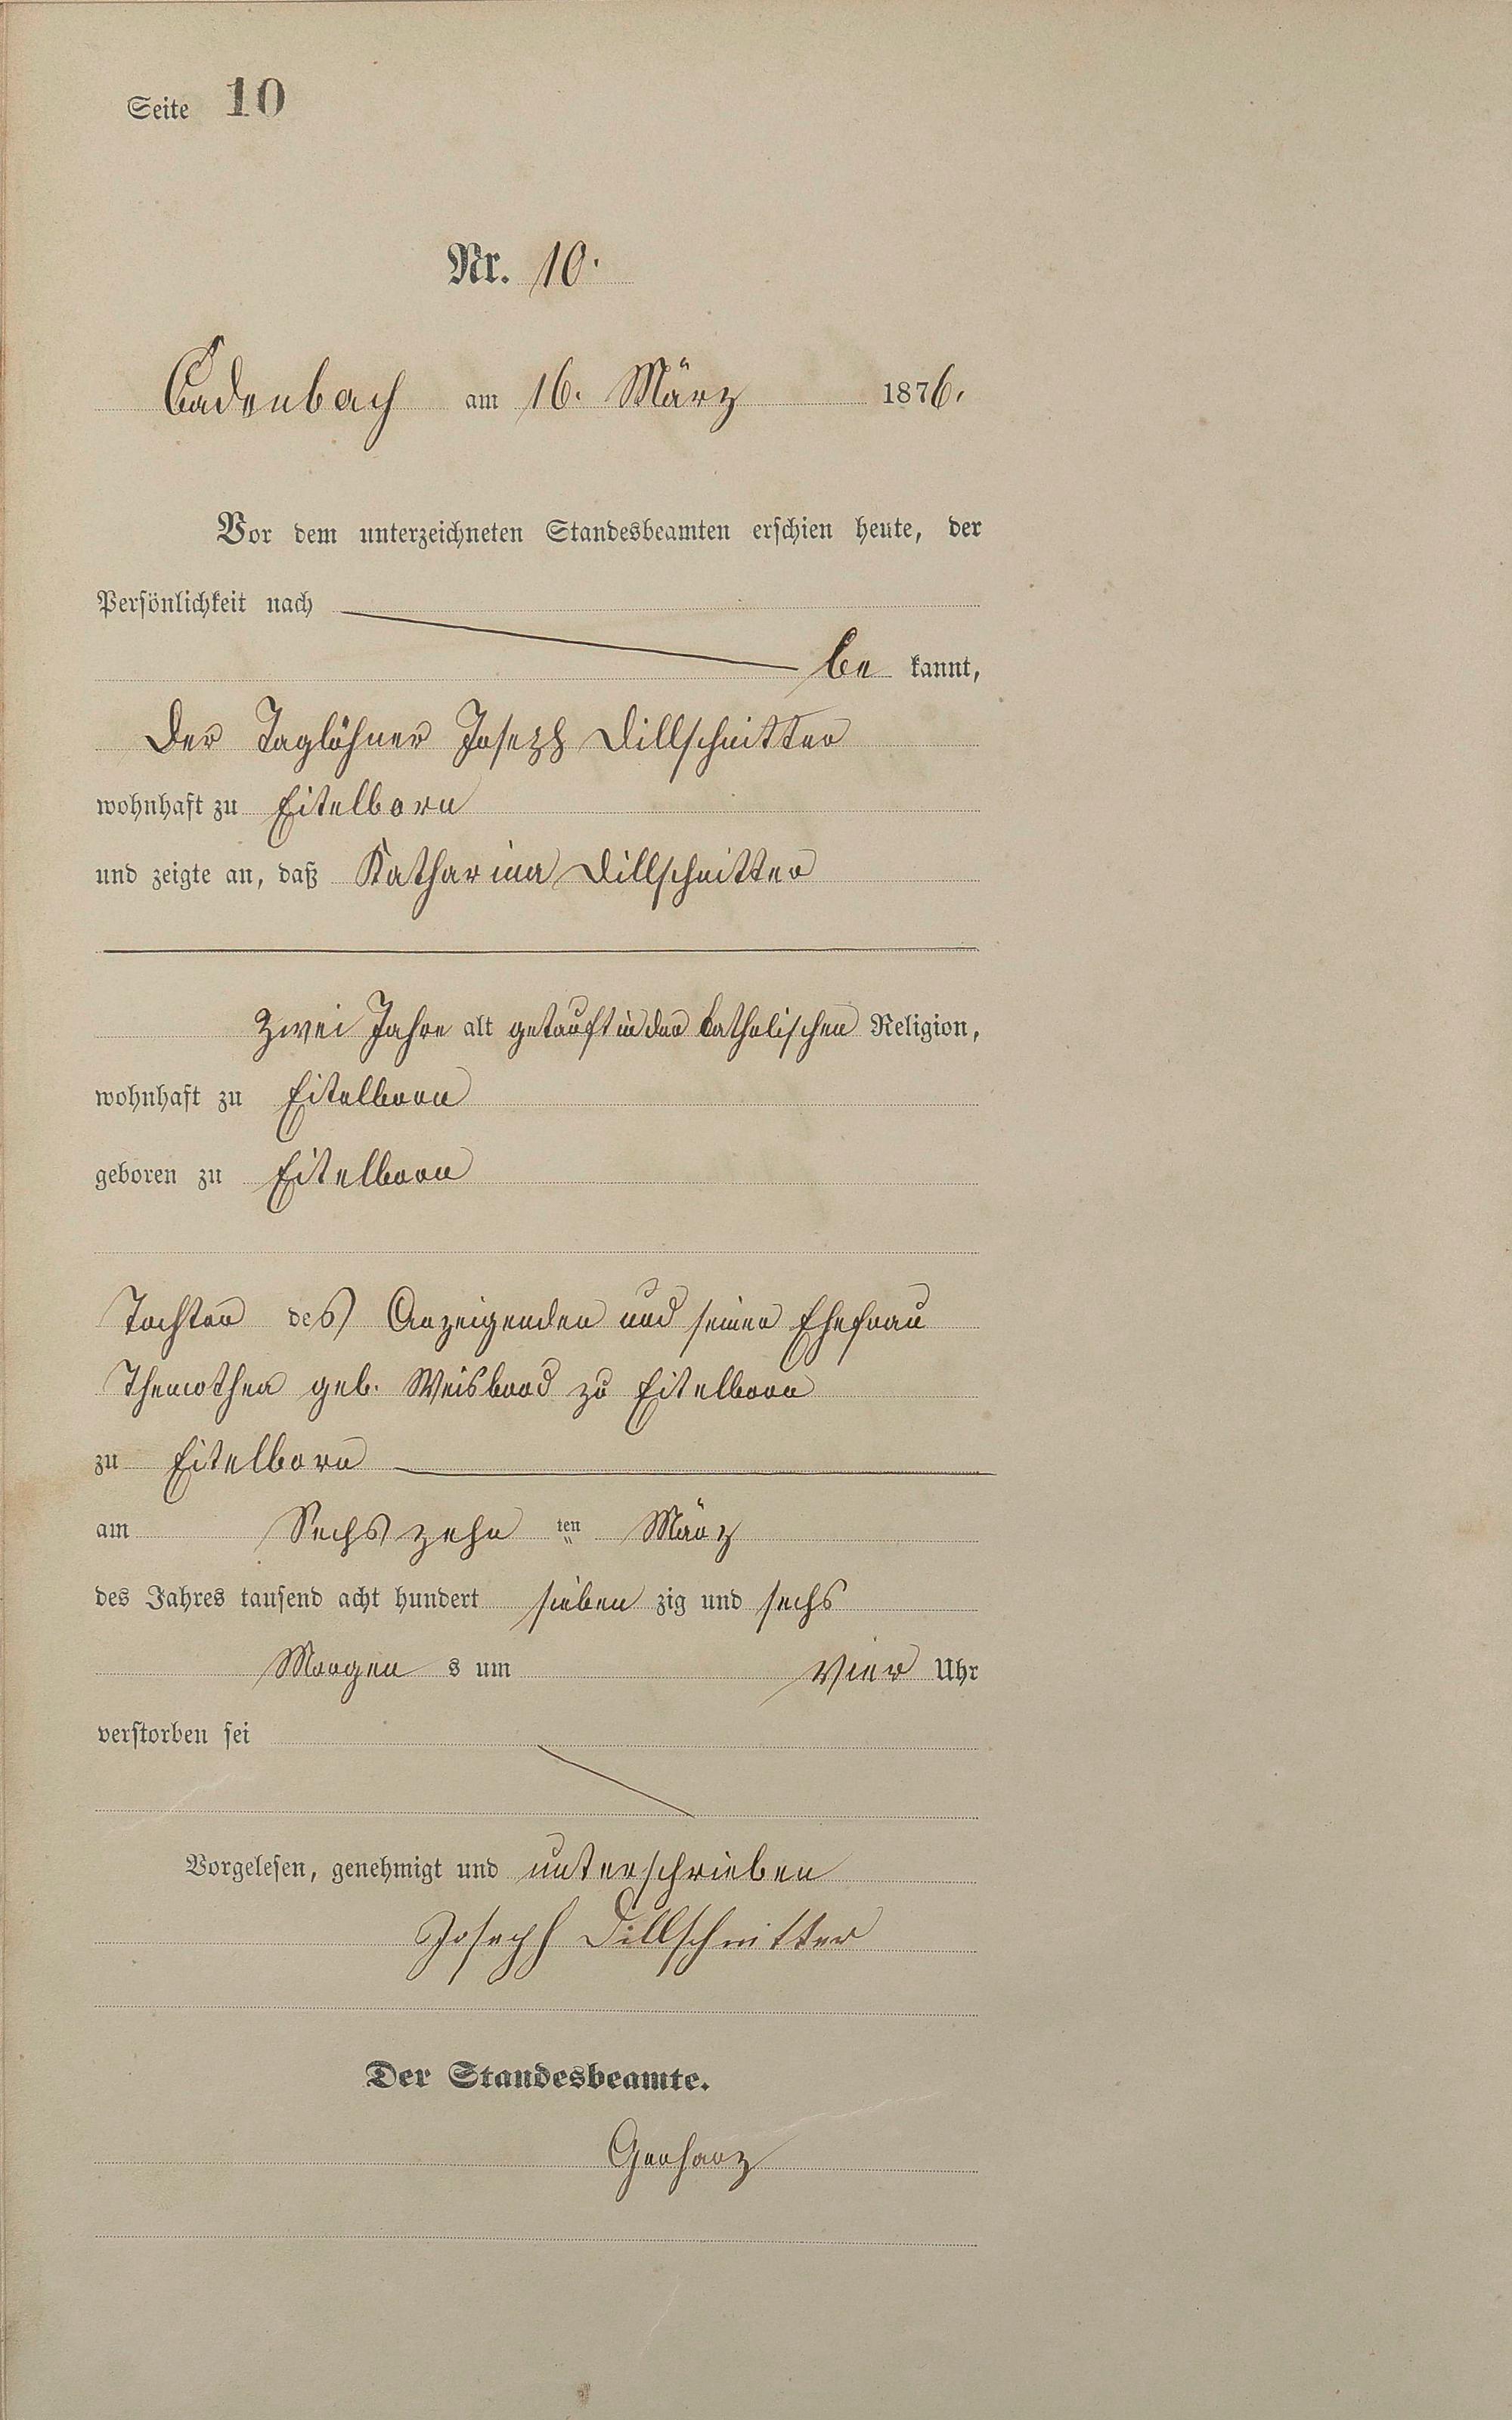 Seite 10
Nr. 10.
Cadenbach am 16. März 1876.
Vor dem unterzeichneten Standesbeamten erschien heute, der
Persönlichkeit nach
be kannt,
Der Taglöhner Joseph Dillschnitter
wohnhaft zu Eitelborn
und zeigte an, daß Katharina Dillschnitter
zwei Jahre alt getauft in der katholischen Religion,
wohnhaft zu Eitelborn
geboren zu Eitelborn
Tochter des Anzeigenden und seiner Ehefrau
geb. Weisbrod zu Eitelborn
zu Eitelborn
am Sechszehn ten März
des Jahres tausend acht hundert sieben zig und sechs
Morgen s um vier Uhr
verstorben sei
Vorgelesen, genehmigt und unterschrieben
Joseph Dillschnitter
Der Standesbeamte.
Gerharz